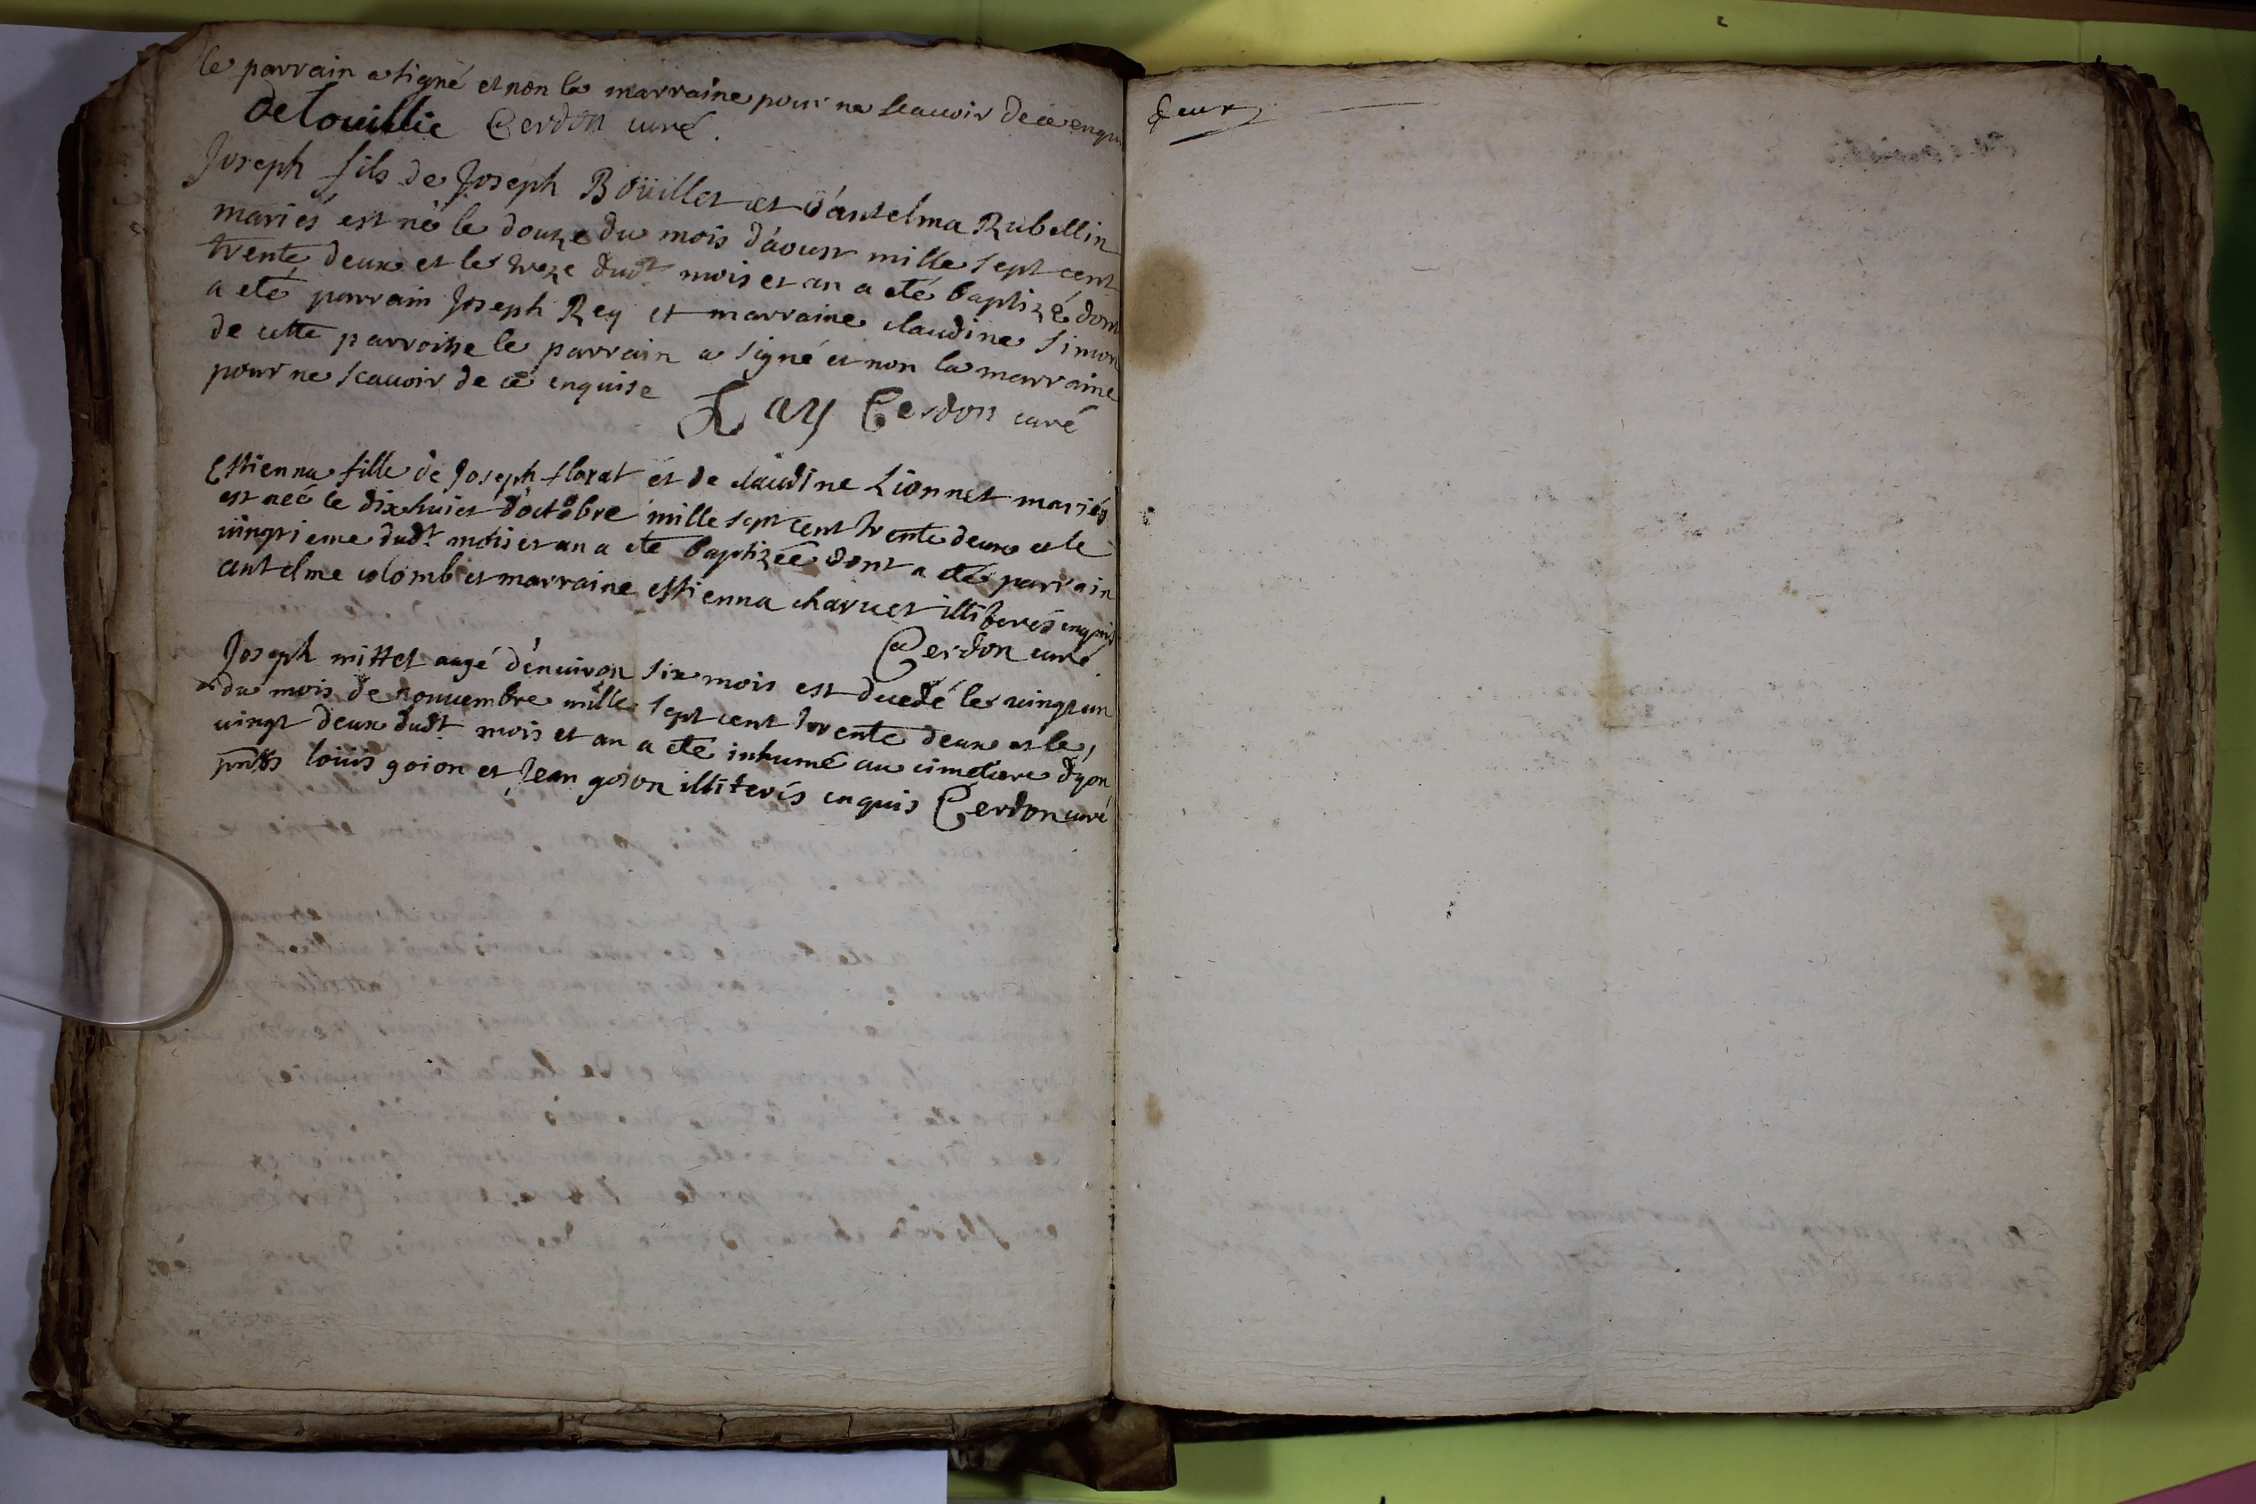 le parrain a signé et non la marraine pour ne scauoir de ce enqu
deLouillie Cerdon curé.
Joseph fils de Joseph Boüillet et d'antelma Rubellin
mariés est né le douze du mois d'aoust mille sept cent
trente deux et le treze dudt mois et an a eté baptizé dont
a eté parrain Joseph Rey et marraine claudine simon
de cette parroisse le parrain a signé et non la marraine
pour ne scauoir de ce enquise
Ray Cerdon curé
Estienna fille de Joseph florat et de claudine Lionnet mariés
est neé le dixhuict d'octobre mille sept cent trente deux et le
uingtieme dudt mois et an a eté baptizée dont a eté parrain
antelme colomb et marraine estienna charuet illiterés enquis
Cerdon curé
Joseph mittet augé d'enuiron six mois est decedé le uingt un
du mois de nouuembre mille sept cent trente deux et le
uingt deux dudt mois et an a eté inhumé au cimetiere dyon
pnts loüis goion et Jean goion illiterés enquis Cerdon curé
deux